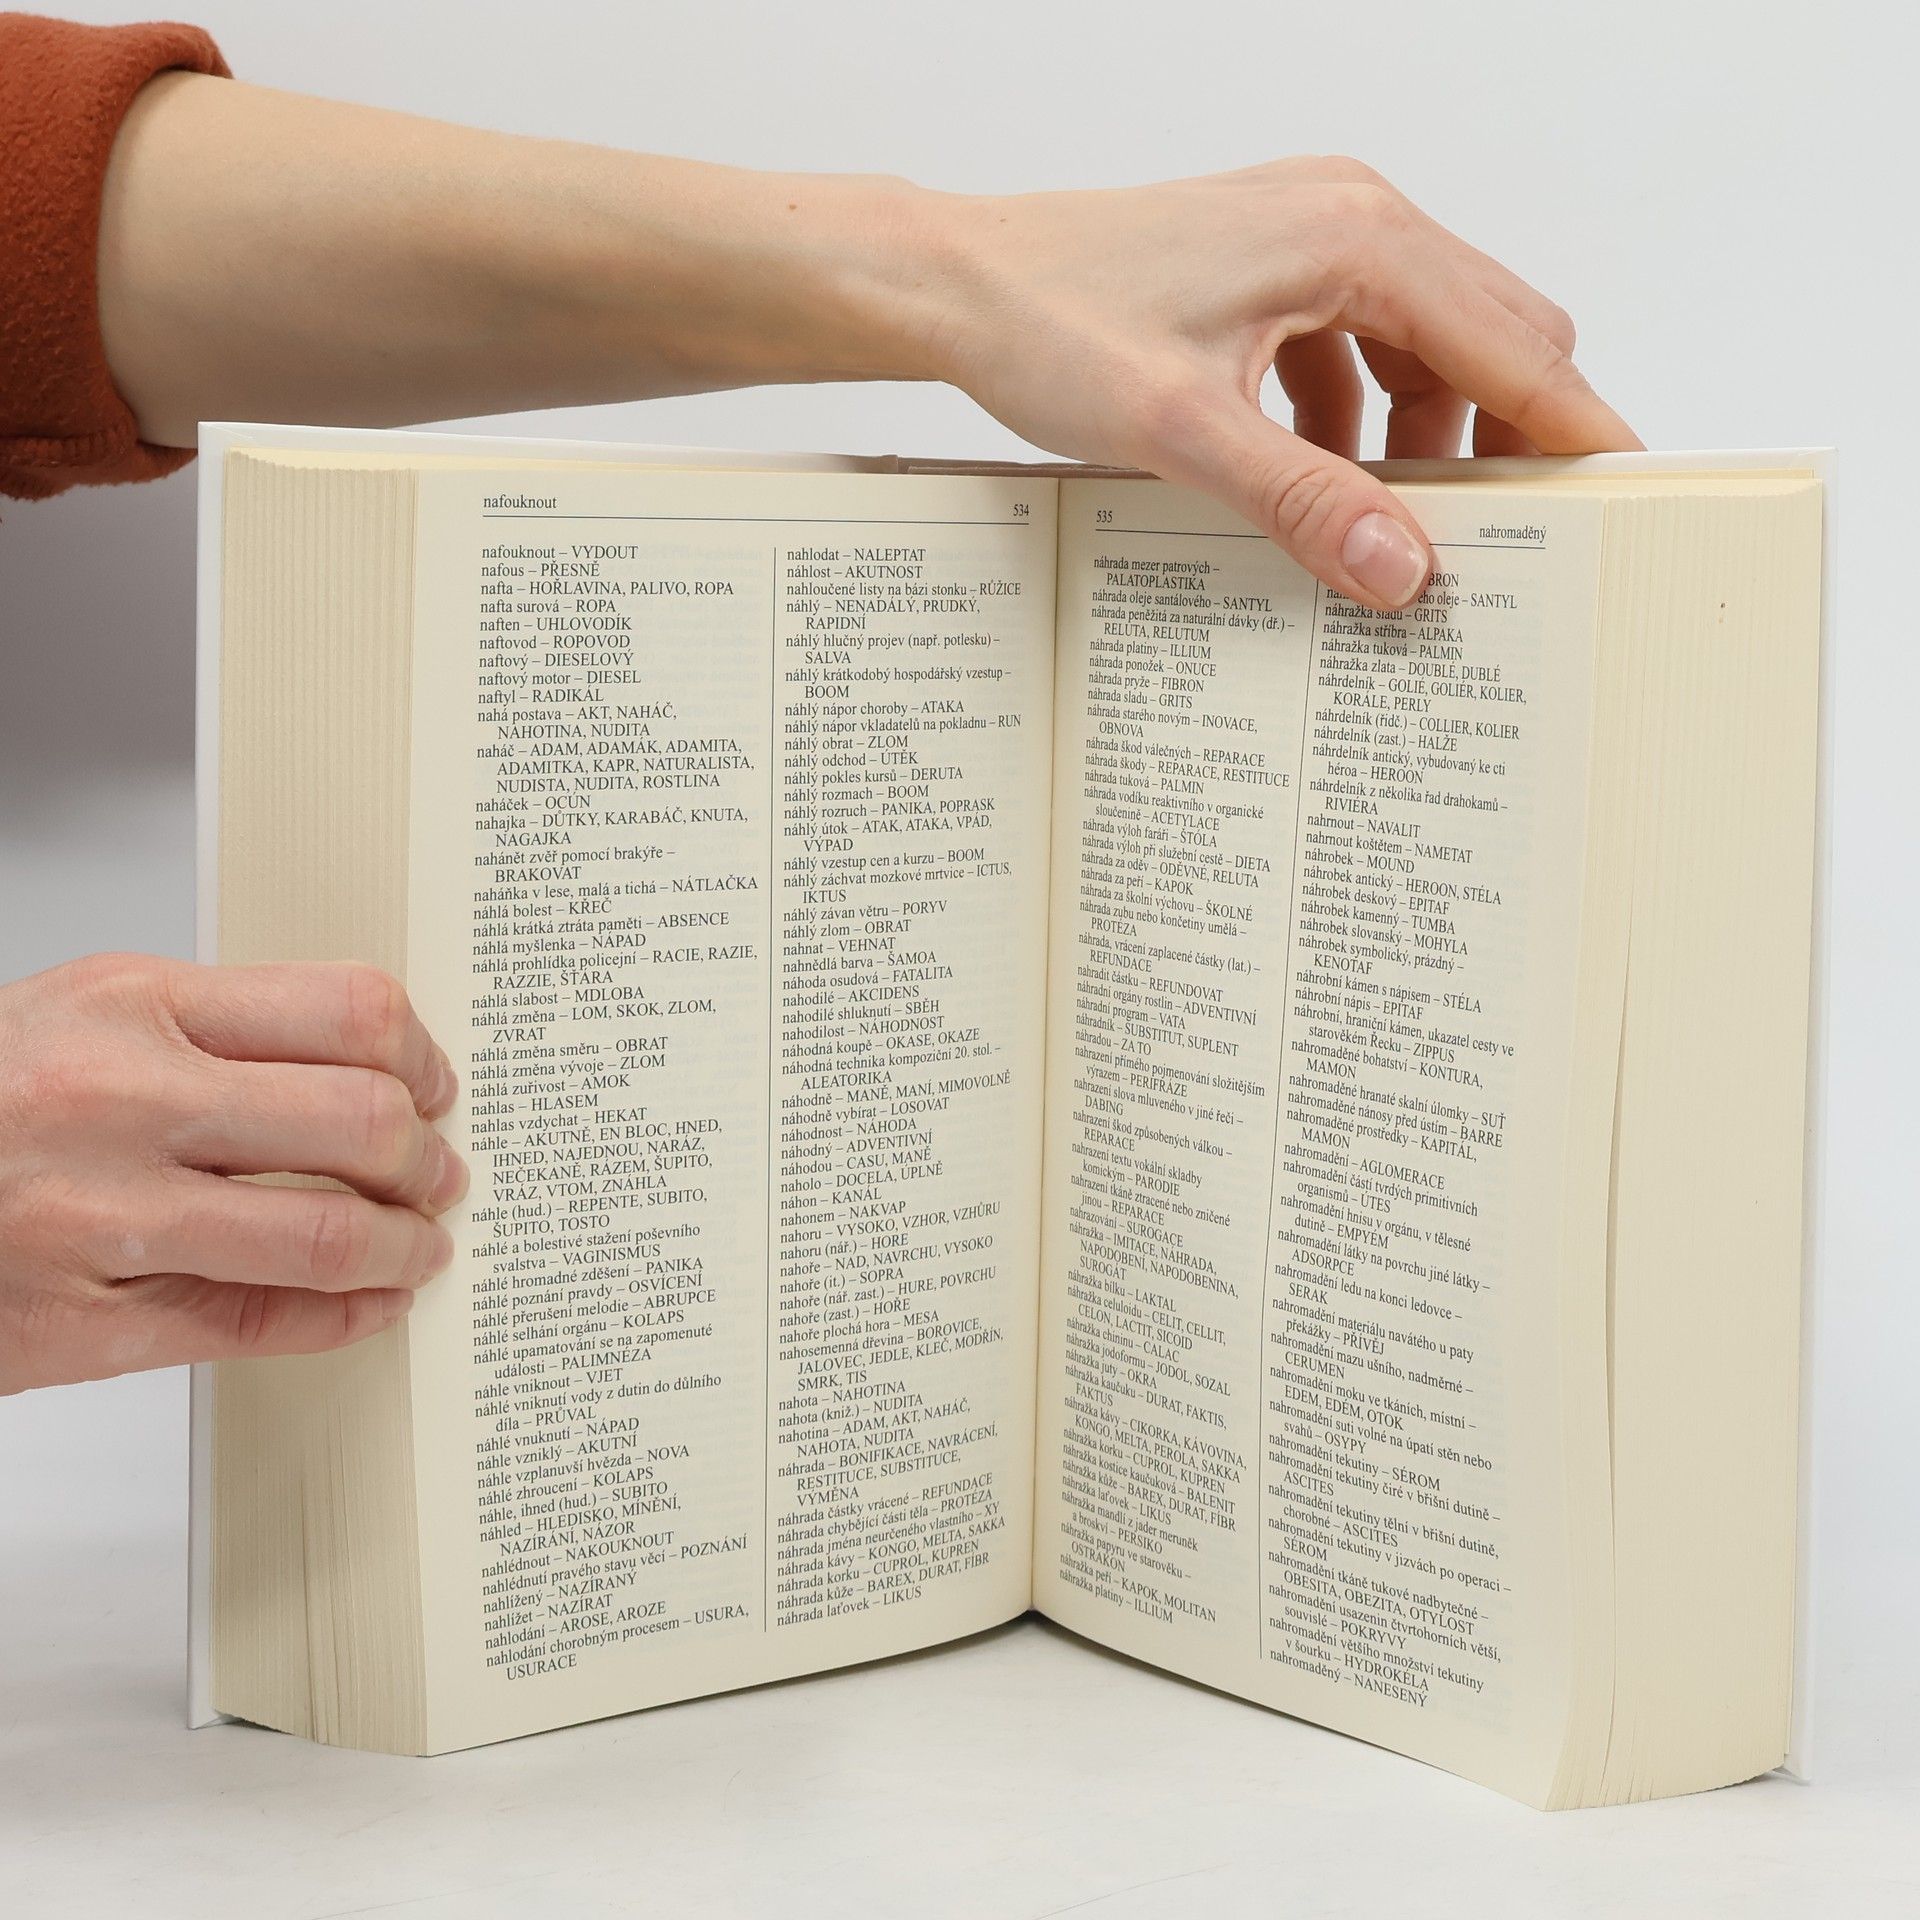 nafouknout
534
nafouknout – VYDOUT
nafous – PŘESNĚ
nafta – HOŘLAVINA, PALIVO, ROPA
nafta surová – ROPA
naften – UHLOVODÍK
naftovod – ROPOVOD
naftový – DIESELOVÝ
naftový motor – DIESEL
naftyl – RADIKÁL
nahá postava – AKT, NAHÁČ,
NAHOTINA, NUDITA
naháč – ADAM, ADAMÁK, ADAMITA,
ADAMITKA, KAPR, NATURALISTA,
NUDISTA, NUDITA, ROSTLINA
naháček – OCÚN
nahajka – DŮTKY, KARABÁČ, KNUTA,
NAGAJKA
nahánět zvěř pomocí brakýře –
BRAKOVAT
naháňka v lese, malá a tichá – NÁTLAČKA
náhlá bolest – KŘEČ
náhlá krátká ztráta paměti – ABSENCE
náhlá myšlenka – NÁPAD
náhlá prohlídka policejní – RACIE, RAZIE,
RAZZIE, ŠŤÁRA
náhlá slabost – MDLOBA
náhlá změna – LOM, SKOK, ZLOM,
ZVRAT
náhlá změna směru – OBRAT
náhlá změna vývoje – ZLOM
náhlá zuřivost – AMOK
nahlas – HLASEM
nahlas vzdychat – HEKAT
náhle – AKUTNĚ, EN BLOC, HNED,
IHNED, NAJEDNOU, NARÁZ,
NEČEKANĚ, RÁZEM, ŠUPITO,
VRÁZ, VTOM, ZNÁHLA
náhle (hud.) – REPENTE, SUBITO,
ŠUPITO, TOSTO
náhlé a bolestivé stažení poševního
svalstva – VAGINISMUS
náhlé hromadné zděšení – PANIKA
náhlé poznání pravdy – OSVÍCENÍ
náhlé přerušení melodie – ABRUPCE
náhlé selhání orgánu – KOLAPS
náhlé upamatování se na zapomenuté
události – PALIMNÉZA
náhle vniknout – VJET
náhlé vniknutí vody z dutin do důlního
díla – PRŮVAL
náhlé vnuknutí – NÁPAD
náhle vzniklý – AKUTNÍ
náhle vzplanuvší hvězda – NOVA
náhlé zhroucení – KOLAPS
náhle, ihned (hud.) – SUBITO
náhled – HLEDISKO, MÍNĚNÍ,
NAZÍRÁNÍ, NÁZOR
nahlédnout – NAKOUKNOUT
nahlédnutí pravého stavu věcí – POZNÁNÍ
nahlížený – NAZÍRANÝ
nahlížet – NAZÍRAT
nahlodání – AROSE, AROZE
nahlodání chorobným procesem – USURA,
USURACE
nahlodat – NALEPTAT
náhlost – AKUTNOST
nahloučené listy na bázi stonku – RŮŽICE
náhlý – NENADÁLÝ, PRUDKÝ,
RAPIDNÍ
náhlý hlučný projev (např. potlesku) –
SALVA
náhlý krátkodobý hospodářský vzestup –
BOOM
náhlý nápor choroby – ATAKA
náhlý nápor vkladatelů na pokladnu – RUN
náhlý obrat – ZLOM
náhlý odchod – ÚTĚK
náhlý pokles kursů – DERUTA
náhlý rozmach – BOOM
náhlý rozruch – PANIKA, POPRASK
náhlý útok – ATAK, ATAKA, VPÁD,
VÝPAD
náhlý vzestup cen a kurzu – BOOM
náhlý záchvat mozkové mrtvice – ICTUS,
IKTUS
náhlý závan větru – PORYV
náhlý zlom – OBRAT
nahnat – VEHNAT
nahnědlá barva – ŠAMOA
náhoda osudová – FATALITA
nahodilé – AKCIDENS
nahodilé shluknutí – SBĚH
nahodilost – NÁHODNOST
náhodná koupě – OKASE, OKAZE
náhodná technika kompoziční 20. stol. –
ALEATORIKA
náhodně – MANĚ, MANÍ, MIMOVOLNĚ
náhodně vybírat – LOSOVAT
náhodnost – NÁHODA
náhodný – ADVENTIVNÍ
náhodou – CASU, MANĚ
naholo – DOCELA, ÚPLNĚ
náhon – KANÁL
nahonem – NAKVAP
nahoru – VYSOKO, VZHOR, VZHŮRU
nahoru (nář.) – HORE
nahoře – NAD, NAVRCHU, VYSOKO
nahoře (it.) – SOPRA
nahoře (nář. zast.) – HURE, POVRCHU
nahoře (zast.) – HOŘE
nahoře plochá hora – MESA
nahosemenná dřevina – BOROVICE,
JALOVEC, JEDLE, KLEČ, MODŘÍN,
SMRK, TIS
nahota – NAHOTINA
nahota (kniž.) – NUDITA
nahotina – ADAM, AKT, NAHÁČ,
NAHOTA, NUDITA
náhrada – BONIFIKACE, NAVRÁCENÍ,
RESTITUCE, SUBSTITUCE,
VÝMĚNA
náhrada částky vrácené – REFUNDACE
náhrada chybějící části těla – PROTÉZA
náhrada jména neurčeného vlastního – XY
náhrada kávy – KONGO, MELTA, SAKKA
náhrada korku – CUPROL, KUPREN
náhrada kůže – BAREX, DURAT, FÍBR
náhrada laťovek – LIKUS
535
nahromaděný
náhrada mezer patrových –
PALATOPLASTIKA
náhrada oleje santálového – SANTYL
náhrada peněžitá za naturální dávky (dř.) –
RELUTA, RELUTUM
náhrada platiny – ILLIUM
náhrada ponožek – ONUCE
náhrada pryže – FIBRON
náhrada sladu – GRITS
náhrada starého novým – INOVACE,
OBNOVA
náhrada škod válečných – REPARACE
náhrada škody – REPARACE, RESTITUCE
náhrada tuková – PALMIN
náhrada vodíku reaktivního v organické
sloučenině – ACETYLACE
náhrada výloh faráři – ŠTÓLA
náhrada výloh při služební cestě – DIETA
náhrada za oděv – ODĚVNÉ, RELUTA
náhrada za peří – KAPOK
náhrada za školní výchovu – ŠKOLNÉ
náhrada zubu nebo končetiny umělá –
PROTÉZA
náhrada, vrácení zaplacené částky (lat.) –
REFUNDACE
nahradit částku – REFUNDOVAT
náhradní orgány rostlin – ADVENTIVNÍ
náhradní program – VATA
náhradník – SUBSTITUT, SUPLENT
náhradou – ZA TO
nahrazení přímého pojmenování složitějším
výrazem – PERIFRÁZE
nahrazení slova mluveného v jiné řeči –
DABING
nahrazení škod způsobených válkou –
REPARACE
nahrazení textu vokální skladby
komickým – PARODIE
nahrazení tkáně ztracené nebo zničené
jinou – REPARACE
nahrazování – SUROGACE
náhražka – IMITACE, NÁHRADA,
NAPODOBENÍ, NAPODOBENINA,
SUROGÁT
náhražka bílku – LAKTAL
náhražka celuloidu – CELIT, CELLIT,
CELON, LACTIT, SICOID
náhražka chininu – CALAC
náhražka jodoformu – JODOL, SOZAL
náhražka juty – OKRA
náhražka kaučuku – DURAT, FAKTIS,
FAKTUS
náhražka kávy – CIKORKA, KÁVOVINA,
KONGO, MELTA, PEROLA, SAKKA
náhražka korku – CUPROL, KUPREN
náhražka kostice kaučuková – BALENIT
náhražka kůže – BAREX, DURAT, FÍBR
náhražka laťovek – LIKUS
náhražka mandlí z jader meruněk
a broskví – PERSIKO
náhražka papyru ve starověku –
OSTRAKON
náhražka peří – KAPOK, MOLITAN
náhražka platiny – ILLIUM
oleje – SANTYL
náhražka sladu – GRITS
náhražka stříbra – ALPAKA
náhražka tuková – PALMIN
náhražka zlata – DOUBLÉ, DUBLÉ
náhrdelník – GOLIÉ, GOLIER, KOLIER,
KORÁLE, PERLY
náhrdelník (řidč.) – COLLIER, KOLIER
náhrdelník (zast.) – HALŽE
náhrdelník antický, vybudovaný ke cti
héroa – HEROON
náhrdelník z několika řad drahokamů –
RIVIÉRA
nahrnout – NAVALIT
nahrnout koštětem – NAMETAT
náhrobek – MOUND
náhrobek antický – HEROON, STÉLA
náhrobek deskový – EPITAF
náhrobek kamenný – TUMBA
náhrobek slovanský – MOHYLA
náhrobek symbolický, prázdný –
KENOTAF
náhrobní kámen s nápisem – STÉLA
náhrobní nápis – EPITAF
náhrobní, hraniční kámen, ukazatel cesty ve
starověkém Řecku – ZIPPUS
nahromaděné bohatství – KONTURA,
MAMON
nahromaděné hranaté skalní úlomky – SUŤ
nahromaděné nánosy před ústím – BARRE
nahromaděné prostředky – KAPITÁL,
MAMON
nahromadění – AGLOMERACE
nahromadění částí tvrdých primitivních
organismů – ÚTES
nahromadění hnisu v orgánu, v tělesné
dutině – EMPYÉM
nahromadění látky na povrchu jiné látky –
ADSORPCE
nahromadění ledu na konci ledovce –
SERAK
nahromadění materiálu navátého u paty
překážky – PŘÍVĚJ
nahromadění mazu ušního, nadměrné –
CERUMEN
nahromadění moku ve tkáních, místní –
EDEM, EDÉM, OTOK
nahromadění suti volné na úpatí stěn nebo
svahů – OSYPY
nahromadění tekutiny – SÉROM
nahromadění tekutiny čiré v břišní dutině –
ASCITES
nahromadění tekutiny tělní v břišní dutině,
chorobné – ASCITES
nahromadění tekutiny v jizvách po operaci –
SÉROM
nahromadění tkáně tukové nadbytečné –
OBESITA, OBEZITA, OTYLOST
nahromadění usazenin čtvrtohorních větší,
souvislé – POKRYVY
nahromadění většího množství tekutiny
v šourku – HYDROKÉLA
nahromaděný – NANESENÝ